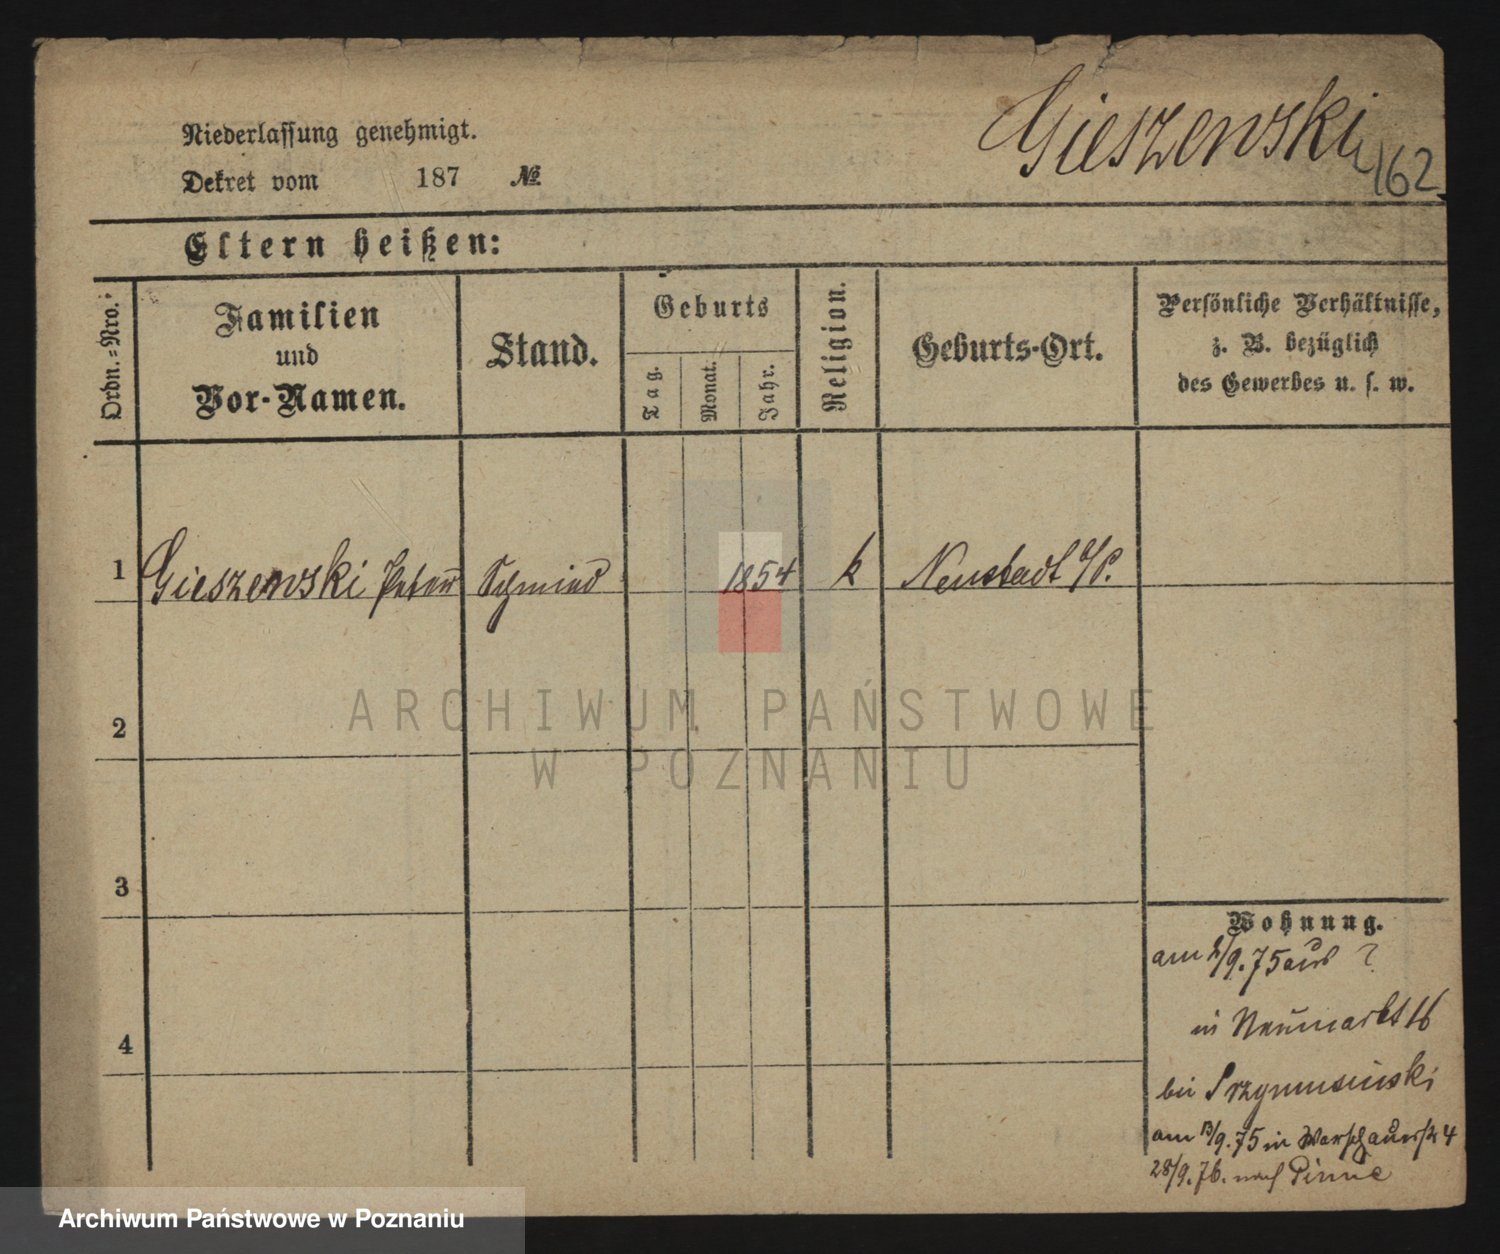 Gieszewski
162
Niederlassung genehmigt.
Dekret vom 187 №
Eltern heißen:
Ordn.=Nro.
Familien
und
Vor-Namen.
Stand.
Geburts
Tag.
Monat.
Jahr.
Religion.
Geburts-Ort.
Persönliche Verhältnisse,
z. B. bezüglich
des Gewerbes u. s. w.
1 Gieszewski Peter Schmied 1854 k Neustadt a/P.
ARCHIWUM PAŃSTWOWE
W POZNANIU
2
3
4
Wohnung.
am /9.75 aus ?
in Neumarkt 16
bei Przymusinski
am 13/9.75 in Warschauerst 4
28/9.76. nach Pinne
Archiwum Państwowe w Poznaniu